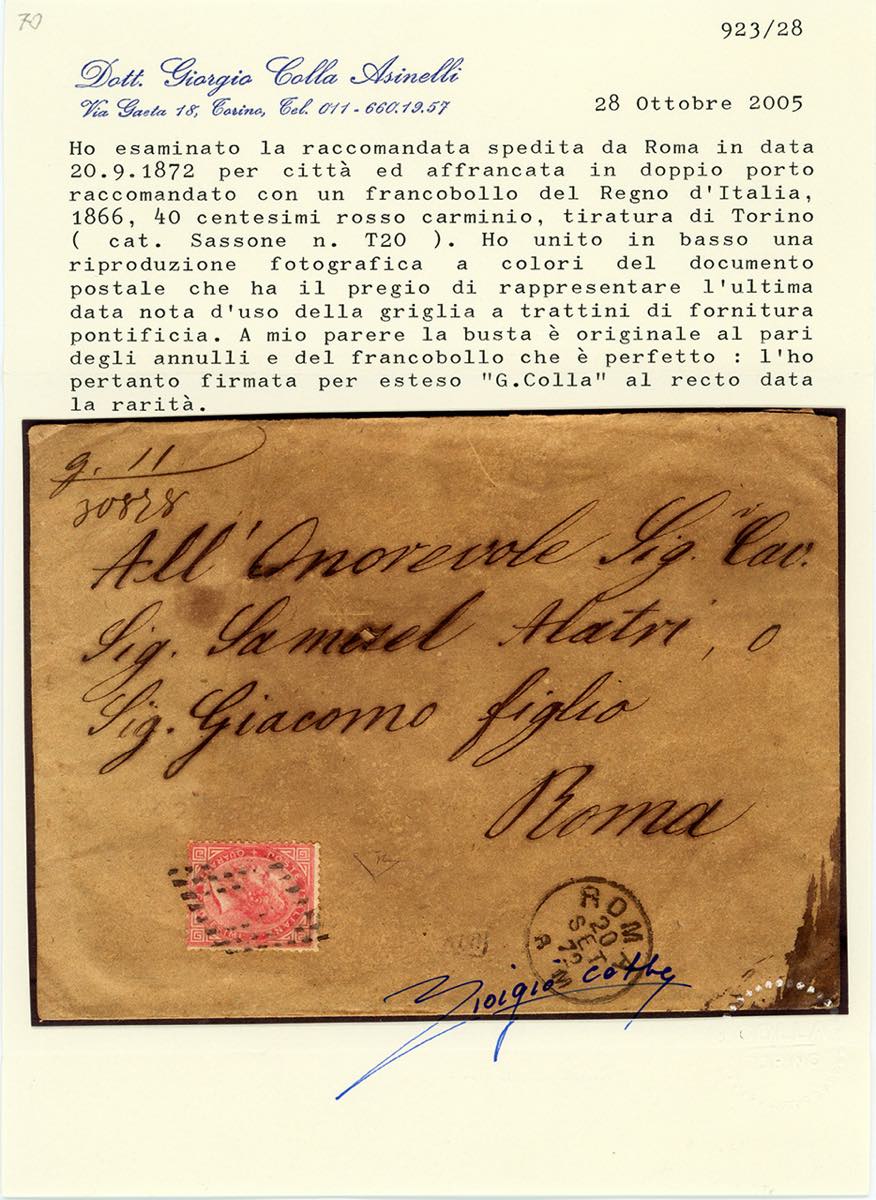 70
923/28
Dott. Giorgio Colla Asinelli
Via Gaeta 18, Torino, Tel. 011-660.19.57
28 Ottobre 2005
Ho esaminato la raccomandata spedita da Roma in data
20.9.1872 per città ed affrancata in doppio porto
raccomandato con un francobollo del Regno d'Italia,
1866, 40 centesimi rosso carminio, tiratura di Torino
( cat. Sassone n. T20 ). Ho unito in basso una
riproduzione fotografica a colori del documento
postale che ha il pregio di rappresentare l'ultima
data nota d'uso della griglia a trattini di fornitura
pontificia. A mio parere la busta è originale al pari
degli annulli e del francobollo che è perfetto : l'ho
pertanto firmata per esteso "G.Colla" al recto data
la rarità.
g. 11
All' Onorevole Sig. Cav.
Sig. Samuel Alatri, o
Sig. Giacomo figlio
Roma
ROMA
20
SET
72
Giorgio Colla